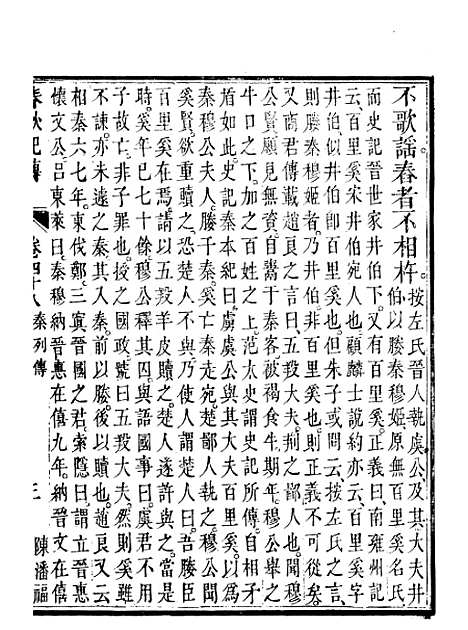 不歌謠舂者不相杵。按左氏晉人執虞公及其大夫井
伯以媵秦穆姬原無百里奚名氏
而史記晉世家井伯下又有百里奚正義曰南雍州記
云百里奚宋井伯宛人也戴麒士說約亦云百里奚字
井伯似井伯卽百里奚也但朱子或問云按左氏之言
則媵秦穆姬者乃井伯非百里奚也則正義不可從矣
又商君傳載趙良之言曰五羖大夫荆之鄙人也聞穆
公賢願見無資自鬻于秦客被褐食牛期年穆公舉之
牛口之下加之百姓之上范太史謂史記所傳自相矛
盾如此史記秦本紀曰虜虞公與其大夫百里奚以爲
秦穆公夫人媵奚亡秦走宛楚鄙人執之穆公聞
奚賢欲重贖之恐楚人不與乃使人謂楚曰吾媵臣
百里奚在焉請以五羖羊皮贖之楚人遂許與之當是
時奚年已七十餘穆公釋其囚與語國事曰虞君不用
子故亡非子罪也授之國政號曰五羖大夫然則奚雖
不諫亦未遽之秦其入秦前以媵後以贖也趙良又云
相秦六七年而東伐鄭三寘晉國之君索隱曰謂立晉惠
懷文公呂東萊曰秦穆納晉惠在僖九年納晉文在僖
春秋紀傳
卷四十八
秦列傳
三
陳潘福